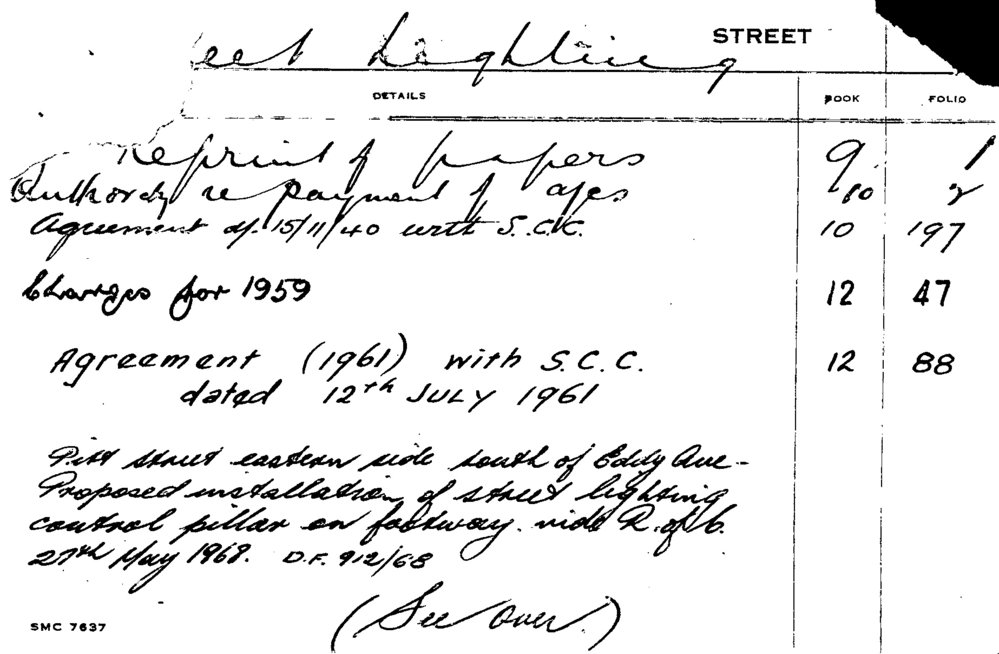 STREET
eet Lighting
DETAILS BOOK FOLIO
Reprint of papers 9 1
Authority re payment of a/cs 10 2
Agreement d/. 15/11/40 with S.C.C. 10 197
Charges for 1959 12 47
Agreement (1961) with S.C.C. 12 88
dated 12th JULY 1961
Pitt street eastern side south of Eddy Ave -
Proposed installation of street lighting
control pillar on footway. vide R. of C.
27th May 1968. D.F. 912/68
(See Over.)
SMC 7637